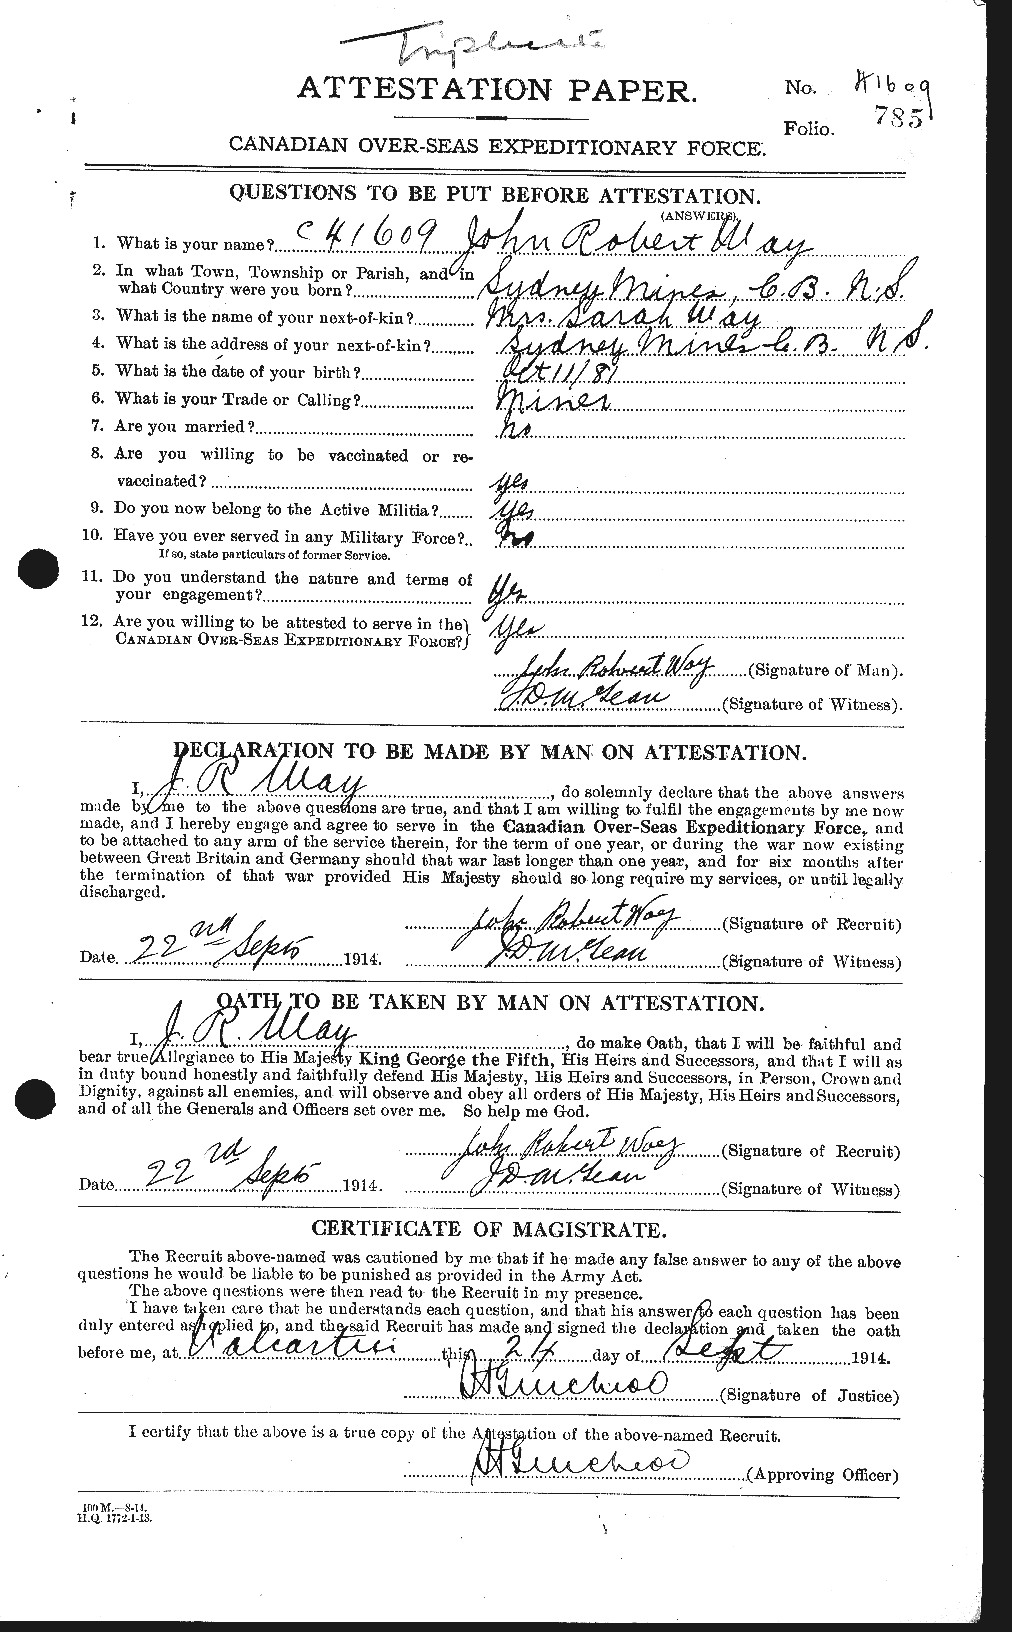 Triplicate
ATTESTATION PAPER.
No. 41609
Folio. 785
CANADIAN OVER-SEAS EXPEDITIONARY FORCE.
QUESTIONS TO BE PUT BEFORE ATTESTATION.
(ANSWERS).
1. What is your name? C41609 John Robert Way
2. In what Town, Township or Parish, and in
what Country were you born? Sydney Mines, C.B. N.S.
3. What is the name of your next-of-kin? Mrs. Sarah Way
4. What is the address of your next-of-kin? Sydney Mines C.B. N.S.
5. What is the date of your birth? Oct 11/87
6. What is your Trade or Calling? Miner
7. Are you married? no
8. Are you willing to be vaccinated or re-
vaccinated? yes
9. Do you now belong to the Active Militia? yes
10. Have you ever served in any Military Force? no
If so, state particulars of former Service.
11. Do you understand the nature and terms of
your engagement? Yes
12. Are you willing to be attested to serve in the
CANADIAN OVER-SEAS EXPEDITIONARY FORCE? yes
John Robert Way (Signature of Man).
J.D. McLean (Signature of Witness).
DECLARATION TO BE MADE BY MAN ON ATTESTATION.
I, J. R. Way, do solemnly declare that the above answers
made by me to the above questions are true, and that I am willing to fulfil the engagements by me now
made, and I hereby engage and agree to serve in the Canadian Over-Seas Expeditionary Force, and
to be attached to any arm of the service therein, for the term of one year, or during the war now existing
between Great Britain and Germany should that war last longer than one year, and for six months after
the termination of that war provided His Majesty should so long require my services, or until legally
discharged.
John Robert Way (Signature of Recruit)
Date. 22nd Sept 1914. J.D. McLean (Signature of Witness)
OATH TO BE TAKEN BY MAN ON ATTESTATION.
I, J. R. Way, do make Oath, that I will be faithful and
bear true Allegiance to His Majesty King George the Fifth, His Heirs and Successors, and that I will as
in duty bound honestly and faithfully defend His Majesty, His Heirs and Successors, in Person, Crown and
Dignity, against all enemies, and will observe and obey all orders of His Majesty, His Heirs and Successors,
and of all the Generals and Officers set over me. So help me God.
John Robert Way (Signature of Recruit)
Date. 22nd Sept 1914. J.D. McLean (Signature of Witness)
CERTIFICATE OF MAGISTRATE.
The Recruit above-named was cautioned by me that if he made any false answer to any of the above
questions he would be liable to be punished as provided in the Army Act.
The above questions were then read to the Recruit in my presence.
I have taken care that he understands each question, and that his answer to each question has been
duly entered as replied to, and the said Recruit has made and signed the declaration and taken the oath
before me, at Valcartier this 24 day of Sept 1914.
(Signature of Justice)
I certify that the above is a true copy of the Attestation of the above-named Recruit.
(Approving Officer)
100 M.—8-14.
H.Q. 1772-1-13.